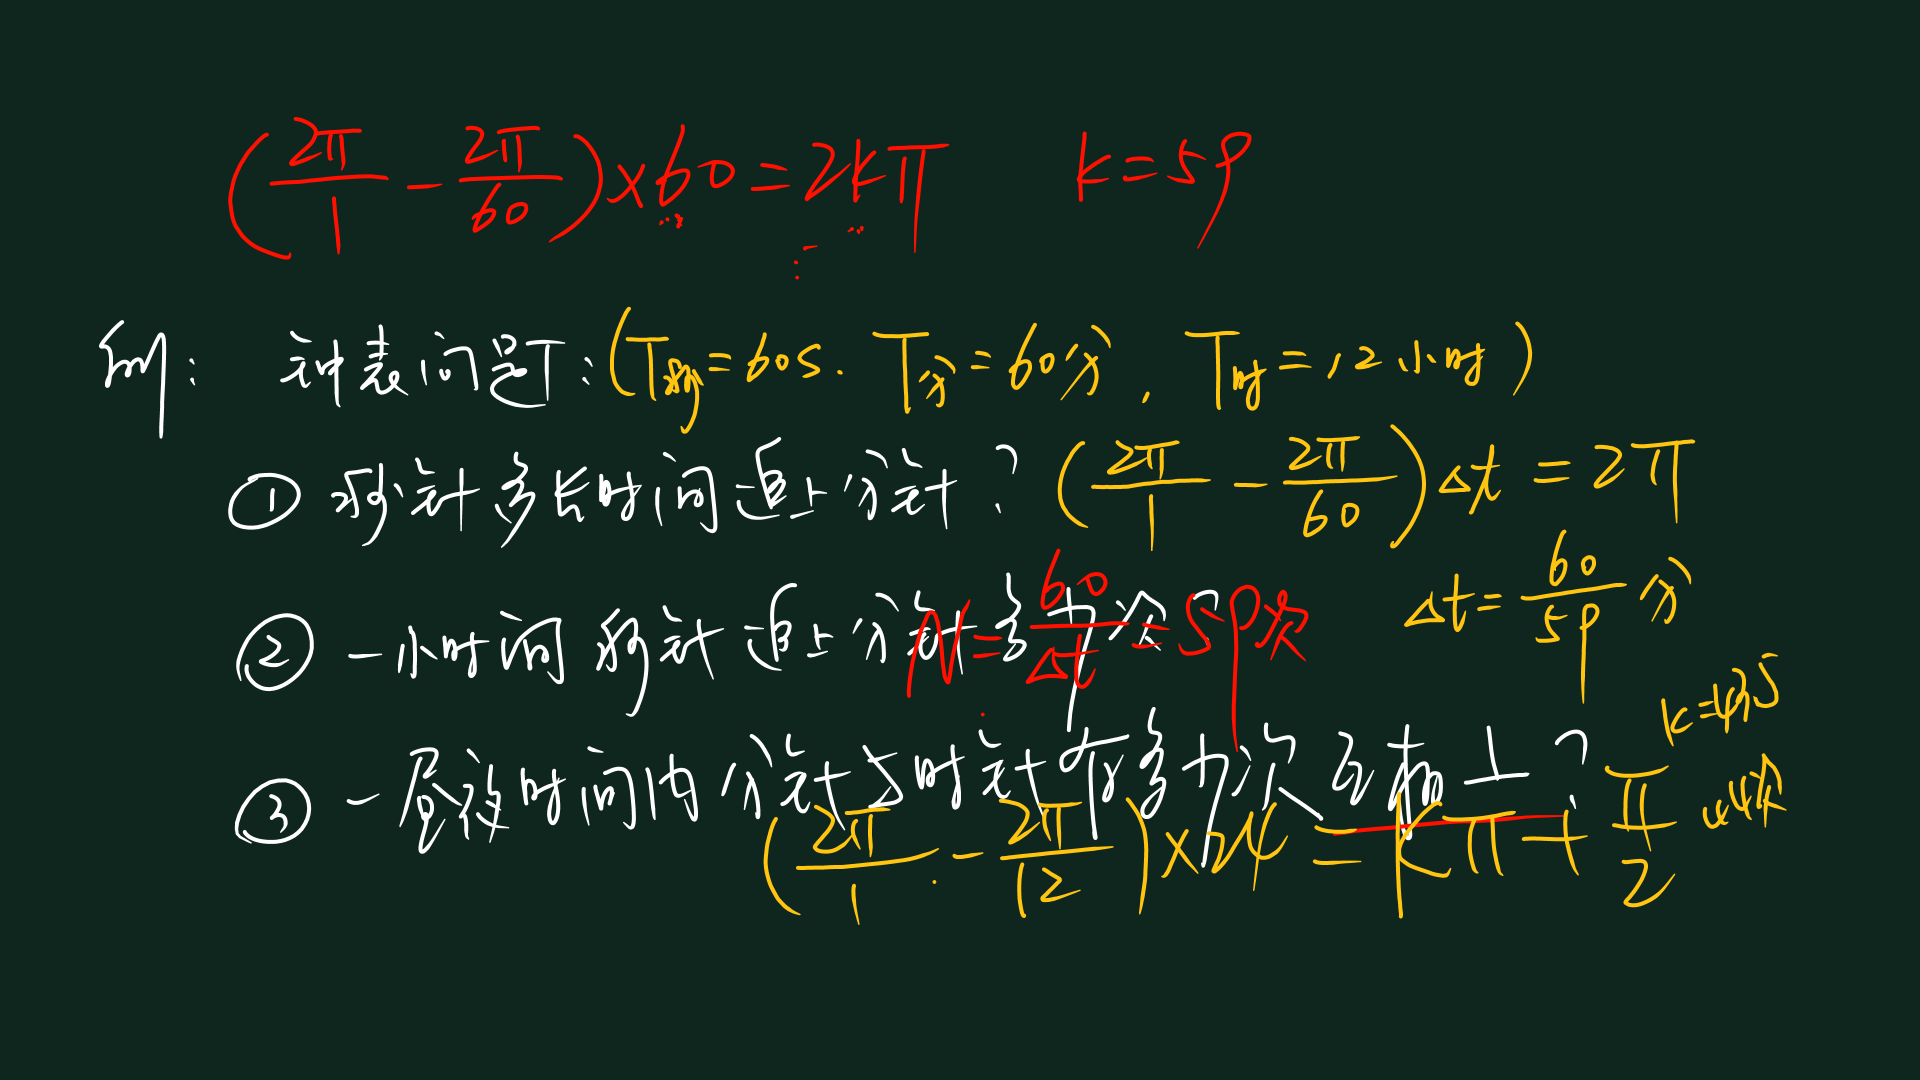 (2π/1 - 2π/60)×60=2kπ k=59
例: 钟表问题:(T秒=60s. T分=60分, T时=12小时)
① 秒针多长时间追上分针? (2π/1 - 2π/60)Δt=2π
Δt=60/59分
② 一小时间秒针追上分针多少次? N=60/Δt=59次
k=43.5
③ 一昼夜时间内分针与时针有多少次互相⊥? 44次
(2π/1 - 2π/12)×24=kπ+π/2